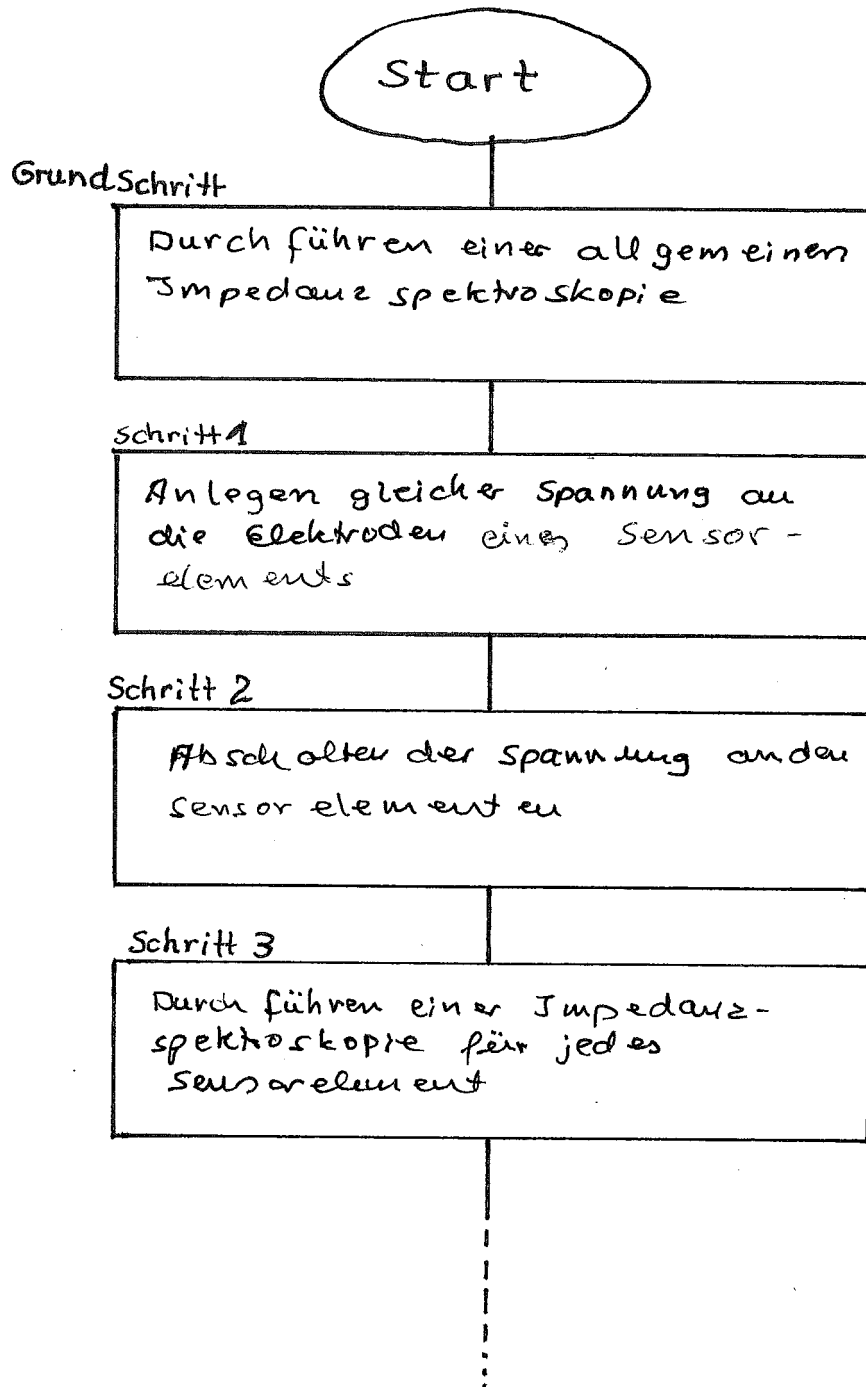 Start
Grundschritt
Durchführen einer allgemeinen
Impedanzspektroskopie
Schritt 1
Anlegen gleicher Spannung an
die Elektroden eines Sensor-
elements
Schritt 2
Abschalten der Spannung an den
Sensorelementen
Schritt 3
Durchführen einer Impedanz-
spektroskopie für jedes
Sensorelement